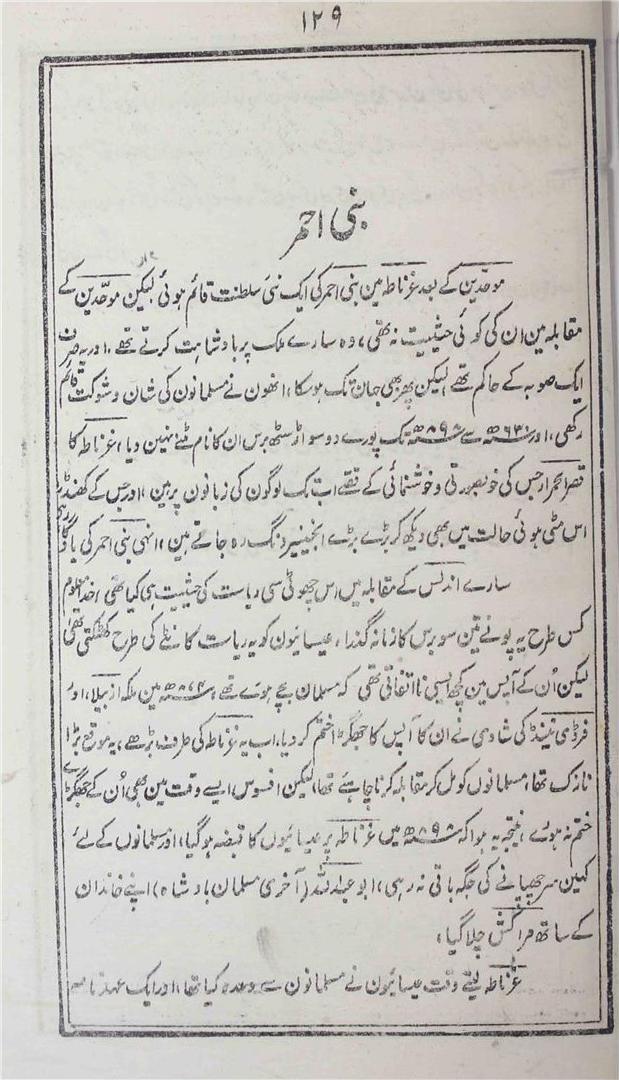 ۱۲۹
بنی احمر
موحّدین کے بعد غرناطہ مین بنی احمر کی ایک نئی سلطنت قائم ہوئی لیکن موحّدین کے
مقابلہ مین ان کی کوئی حیثیت نہ تھی، وہ سارے ملک پر بادشاہت کرتے تھے، اور یہ صرف
ایک صوبہ کے حاکم تھے لیکن پھر بھی جہان تک ہوسکا، انھون نے مسلمانون کی شان و شوکت قائم
رکھی، اور ۶۳۰ھ سے ۸۹۸ھ تک پورے دو سو اڑسٹھ برس ان کا نام مٹنے نہین دیا، غرناطہ کا
قصر الحمراء جس کی خوبصورتی و خوشنمائی کے قصّے اب تک لوگون کی زبانون پر ہین، اور جس کے کھنڈر
اس مٹی ہوئی حالت میں بھی دیکھ کر بڑے بڑے انجینیر دنگ رہ جاتے ہین، انہی بنی احمر کی یادگار ہی
سارے اندلس کے مقابلہ میں اس چھوٹی سی ریاست کی حیثیت ہی کیا تھی، خدا معلوم
کس طرح یہ پونے تین سو برس کا زمانہ گذرا، عیسائیون کو یہ ریاست کانٹے کی طرح کھٹکتی تھی
لیکن اُن کے آپس مین کچھ ایسی نااتفاقی تھی کہ مسلمان بچے ہوئے تھے، ۸۷۴ھ مین ملکہ ازبیلا، اور
فرڈی نینڈ کی شادی نے ان کا آپس کا جھگڑا ختم کر دیا، اب یہ غرناطہ کی طرف بڑھے، یہ موقع بڑا
نازک تھا، مسلمانوں کو مل کر مقابلہ کرنا چاہئے تھا، لیکن افسوس ایسے وقت مین بھی اُن کے جھگڑے
ختم نہ ہوئے، نتیجہ یہ ہوا کہ ۸۹۸ھ میں غرناطہ پر عیسائیوں کا قبضہ ہوگیا، اور مسلمانوں کے لئے
کہین سر چھپانے کی جگہ باقی نہ رہی، ابو عبداللہ (آخری مسلمان بادشاہ) اپنے خاندان
کے ساتھ مراکش چلا گیا،
غرناطہ لیتے وقت عیسائیون نے مسلمانون سے وعدہ کیا تھا، اور ایک عہدنامہ